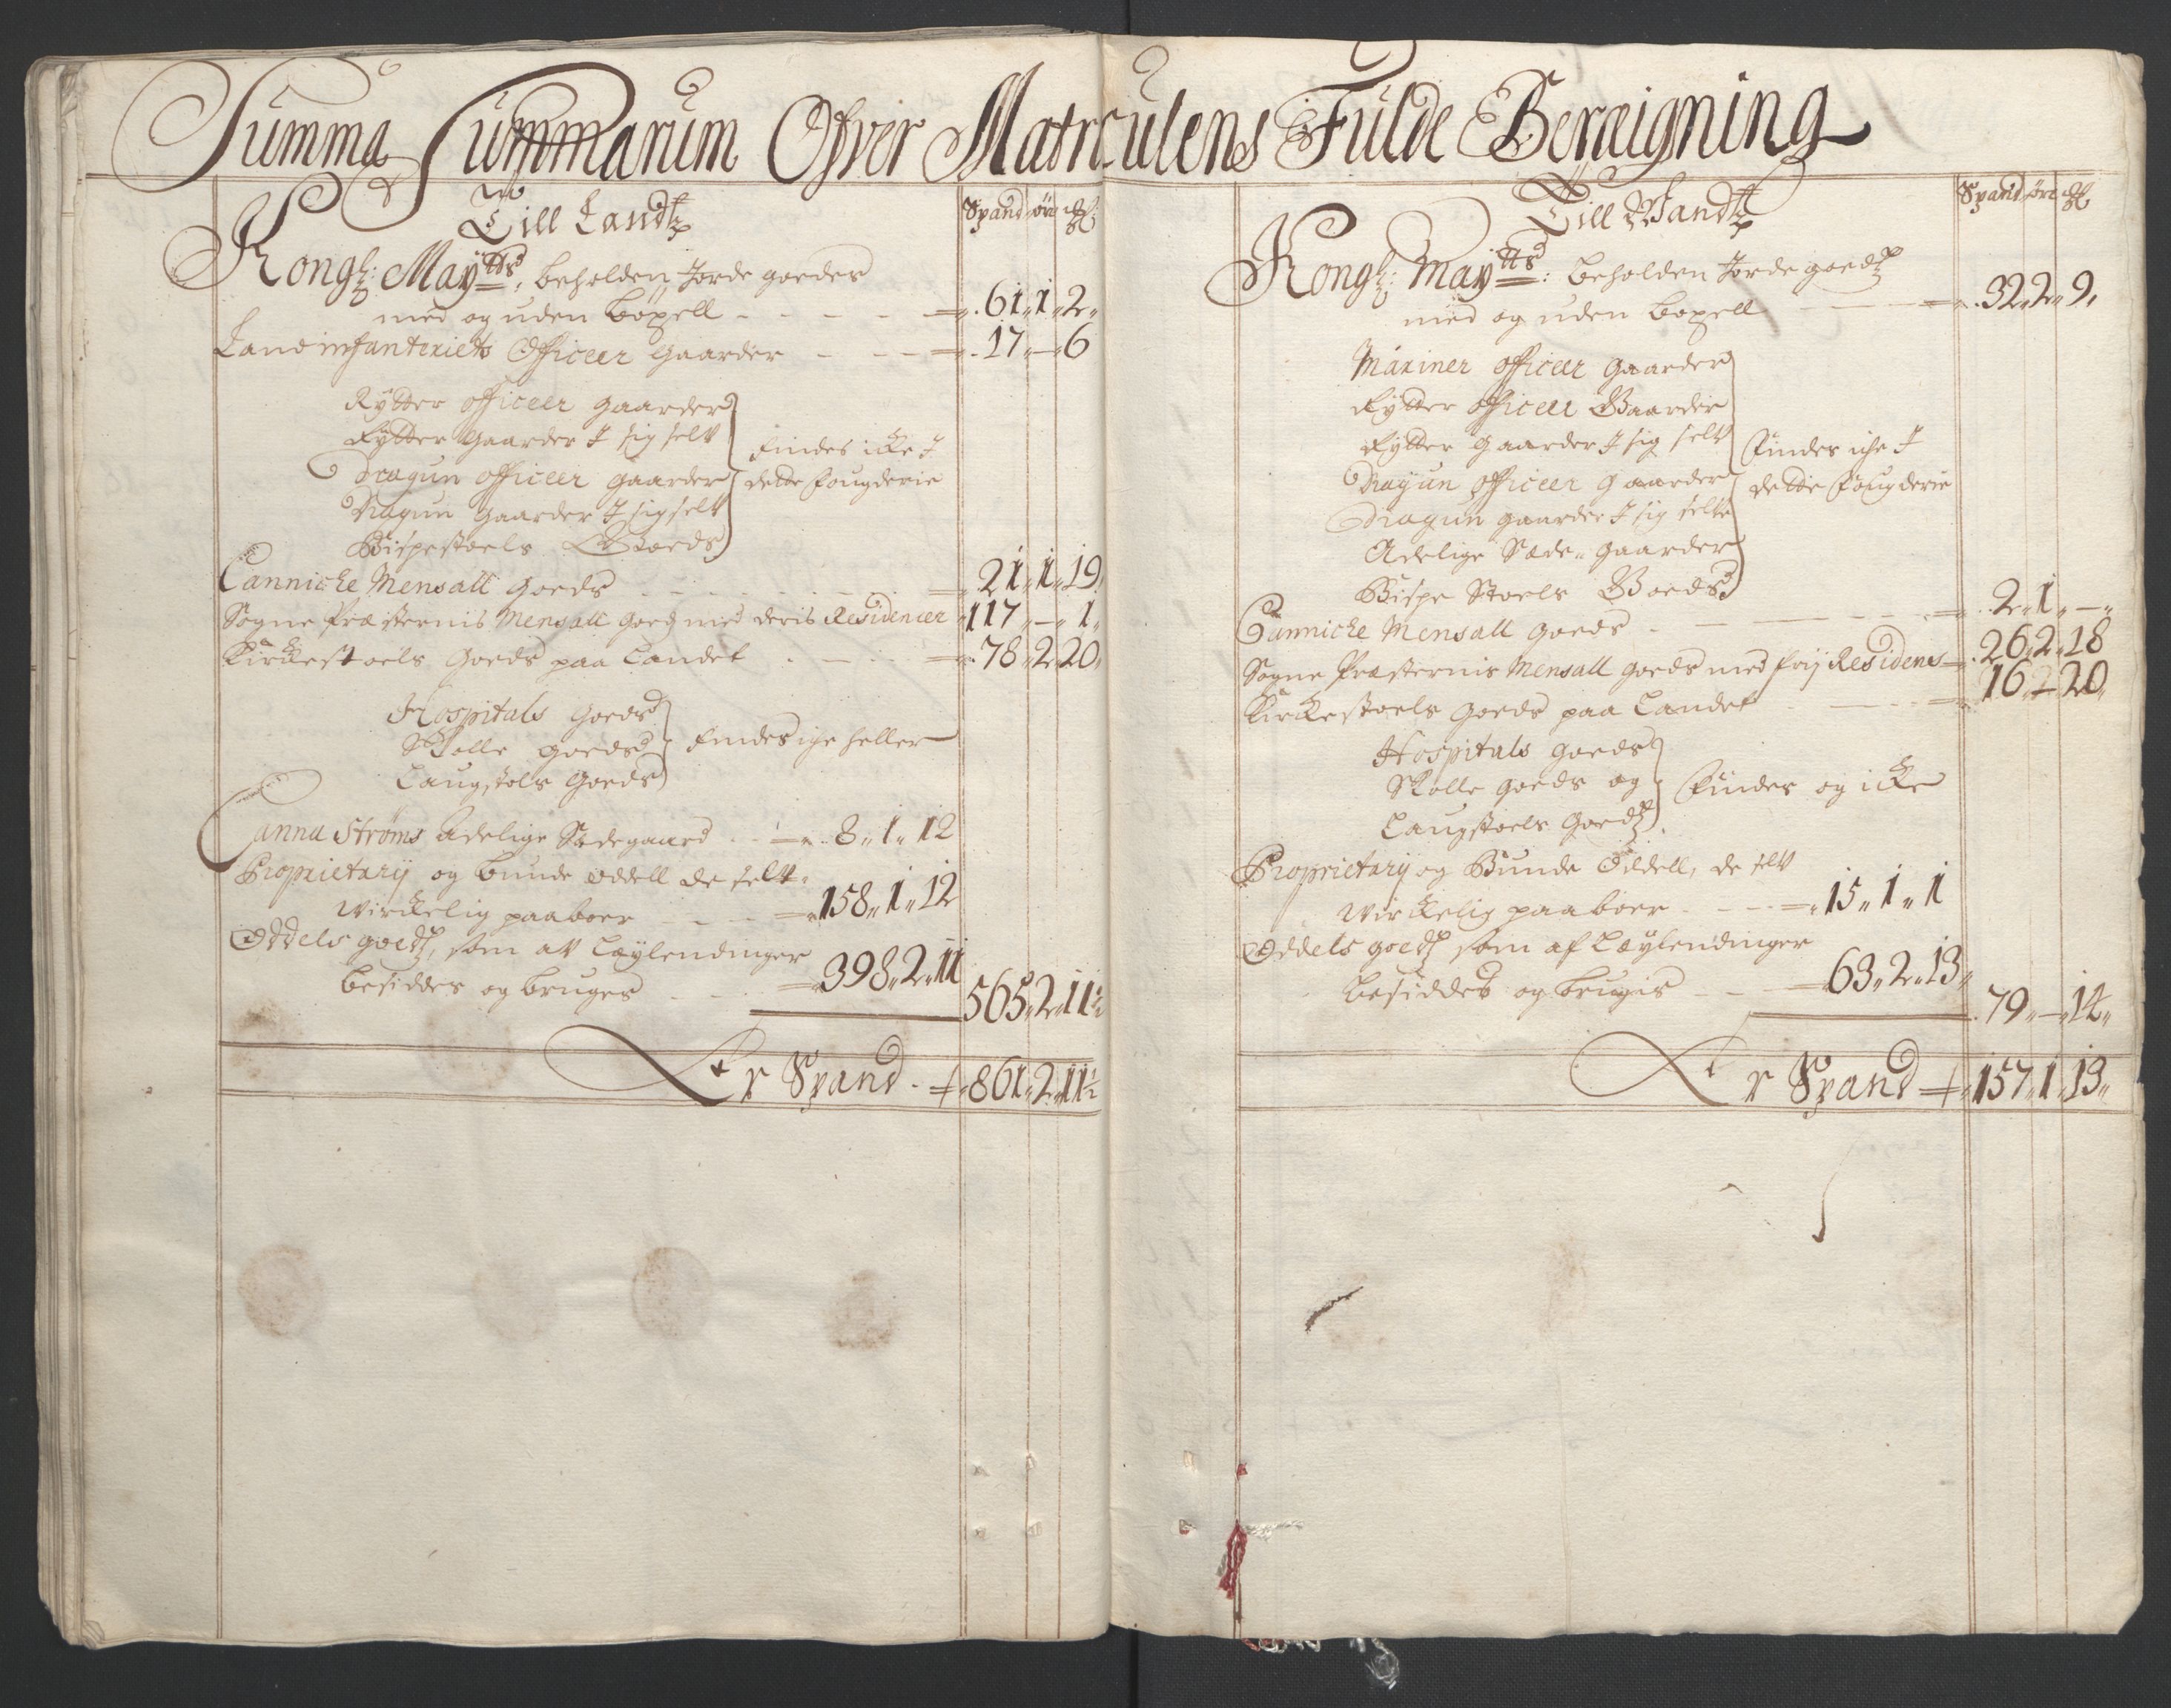 Summa Summarum Ofver Matriculens Fulde Beræigning
Till Landtz
Spand øre
Kongl: Maytts, beholden Jorde goedes
med og uden böxell - - - - 61 „ 1 „ 2 „
Landinfanteriets Officeer gaarder - - - 17 „ — „ 6
Rytter officeer gaarder
Rytter gaarder I sig selv
Dragun officeer gaarder
Dragun gaarder I sig selv
Bispestoels Goeds
findes icke I
dette fougderie
Cannicke Mensall goeds - - - 21 „ 1 „ 19 „
Sogne Præsternis Mensall goeds med deris Residencer 117 „ — „ 1 „
Kirkestoels Goeds paa Landet - - - 78 „ 2 „ 20 „
Hospitals Goeds
Skolle goeds
Laugstols Goeds
findes iche heller
Ströms Adelige Sædegaard - - 8 „ 1 „ 12
Proprietarij og bunde oddell de selv
virkelig paaboer - - - 158 „ 1 „ 12
Oddels goedtz, som av Læylendinger
besiddes og bruges - - - 398 „ 2 „ 11
565 „ 2 „ 11½
Er Spand - 861 „ 2 „ 11½
Till Wandtz
Spand øre
Kongl: Maytts: beholden Jorde goedtz
med og uden boxell - - - 32 „ 2 „ 9 „
Mariner officeer gaarder
Rytter officeer Gaarder
Rytter gaarder I sig selv
Dragun officeer gaarder
Dragun gaarder I sig selv
Adelige Sæde-gaarder
Bispe Stoels Goeds
findes iche I
dette fougderie
Cannicke Mensall goeds - - - 2 „ 1 „ — „
Sogne Præsternis Mensall goeds med frij Residens 26 „ 2 „ 18
Kirkestoels goeds paa Landet - - - 16 „ — „ 20 „
Hospitals goeds
Skolle goeds og
Laugstoels goedtz
findes og icke
Proprietarij og Bunde Oddell, de selv
virkelig paaboer - - - 15 „ 1 „ 1
Oddels goedtz som af Læylendinger
besiddes og brugis - - - 63 „ 2 „ 13 „
79 „ — „ 14 „
Er Spand 157 „ 1 „ 13 „